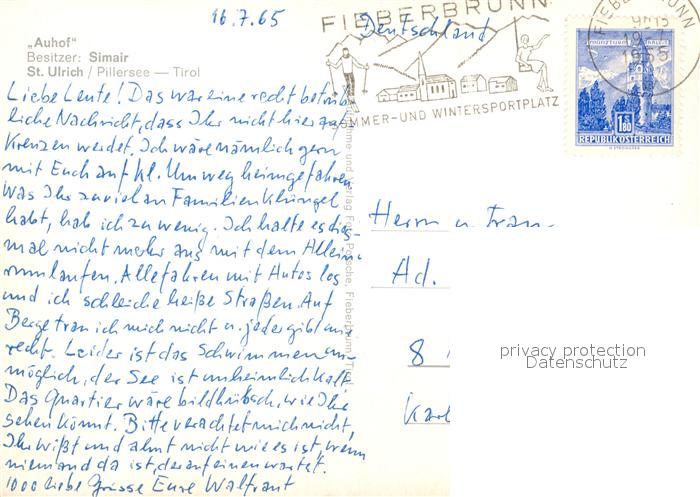 16.7.65
Deutschland
„Auhof"
Besitzer: Simair
St. Ulrich / Pillersee — Tirol
FIEBERBRUNN
SOMMER-UND WINTERSPORTPLATZ
FIEBERBRUNN
1965
1.80
REPUBLIK ÖSTERREICH
Liebe Leute! Das war eine recht betrüb
liche Nachricht, dass Ihr nicht hier auf
Kreuzen werdet. Ich wäre nämlich gern
mit Euch auf kl. Umweg heimgefahren.
Was Ihr zuviel an Familienklüngel
habt, hab ich zu wenig. Ich halte es dies-
mal nicht mehr aus mit dem Allein
rumlaufen. Alle fahren mit Autos los
und ich schleiche heiße Straßen. Auf
Berge trau ich mich nicht u. jeder gibt mir
recht. Leider ist das Schwimmen un-
möglich, der See ist unheimlich kalt.
Das Quartier wäre bildhübsch, wie Ihr
sehen könnt. Bitte verachtet mich nicht,
Ihr wißt und ahnt nicht wie es ist, wenn
niemand da ist, der auf einen wartet.
1000 liebe Grüsse Eure Waltraut
Herrn u. Frau
Ad.
8
Karl
privacy protection
Datenschutz